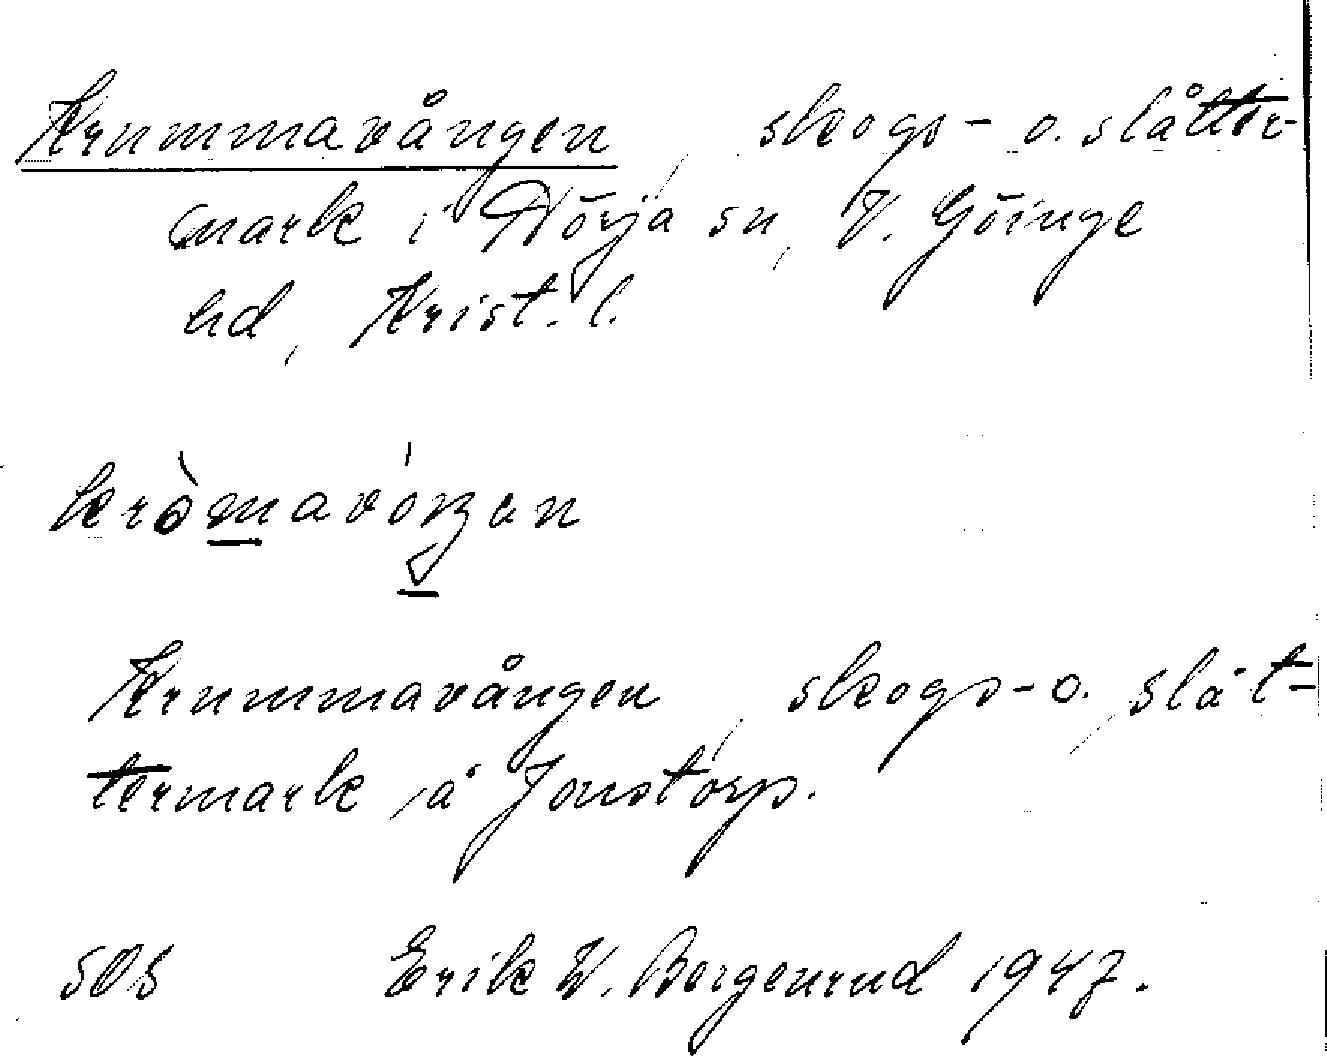 Krummavången, skogs- o. slåtter-
mark i Nörja sn, V. Göinge
hd, Krist. l.
Krummavången, skogs- o. slåt-
termark å Jonstorp.
505 Erik W. Bergenrud 1947.